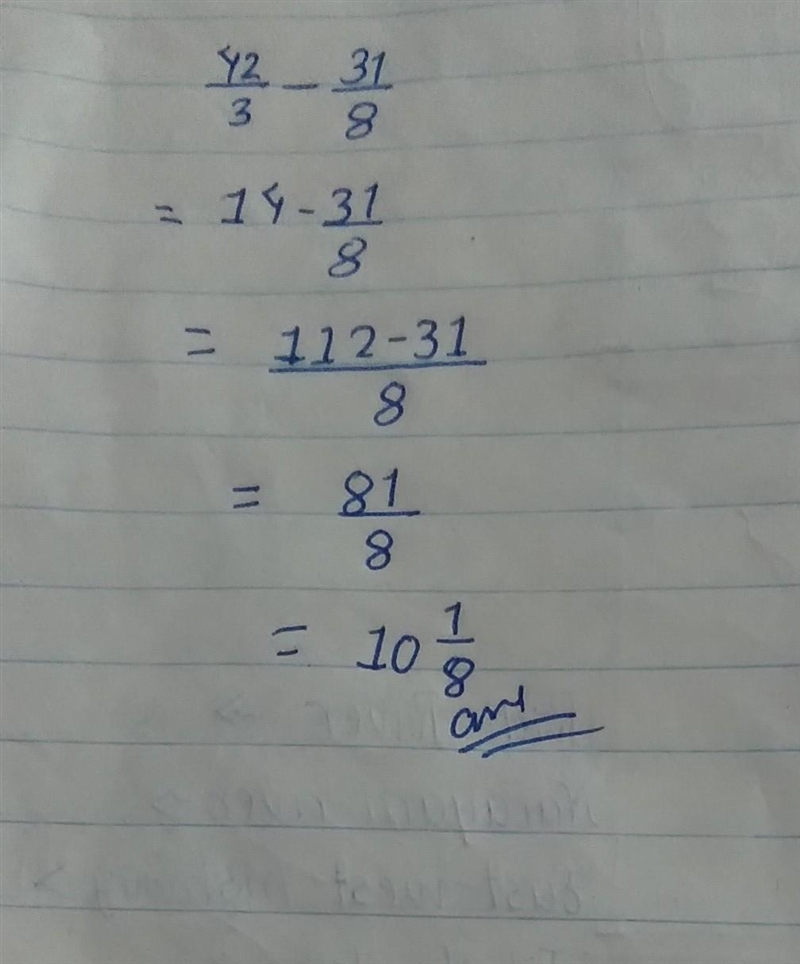 42/3 - 31/8
= 14 - 31/8
= 112 - 31/8
= 81/8
= 10 1/8
ans